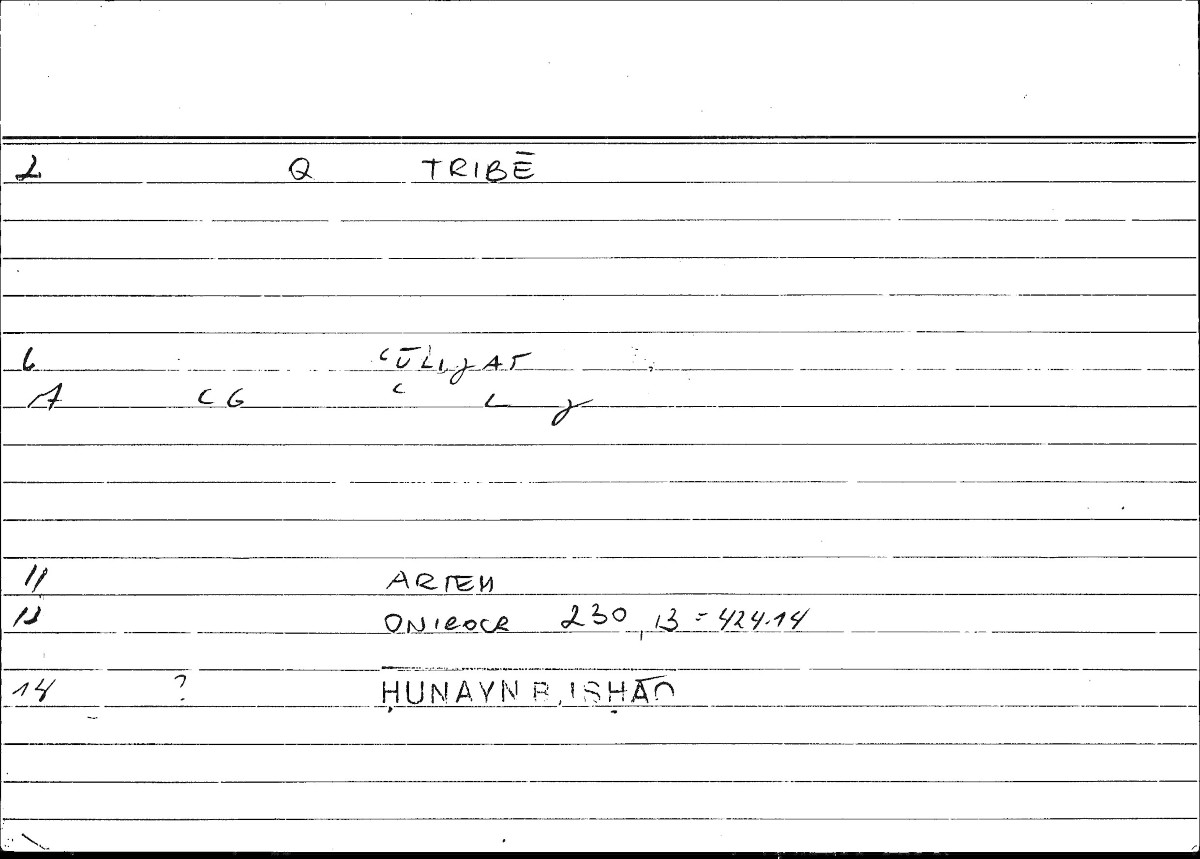 2 Q TRIBĒ
6 ʿŪLIJAT
A C G ʿ L J
11 ARTEM
12 ONIROCR 230,13 = 424.14
14 ? ḤUNAYN B. ISḤĀQ